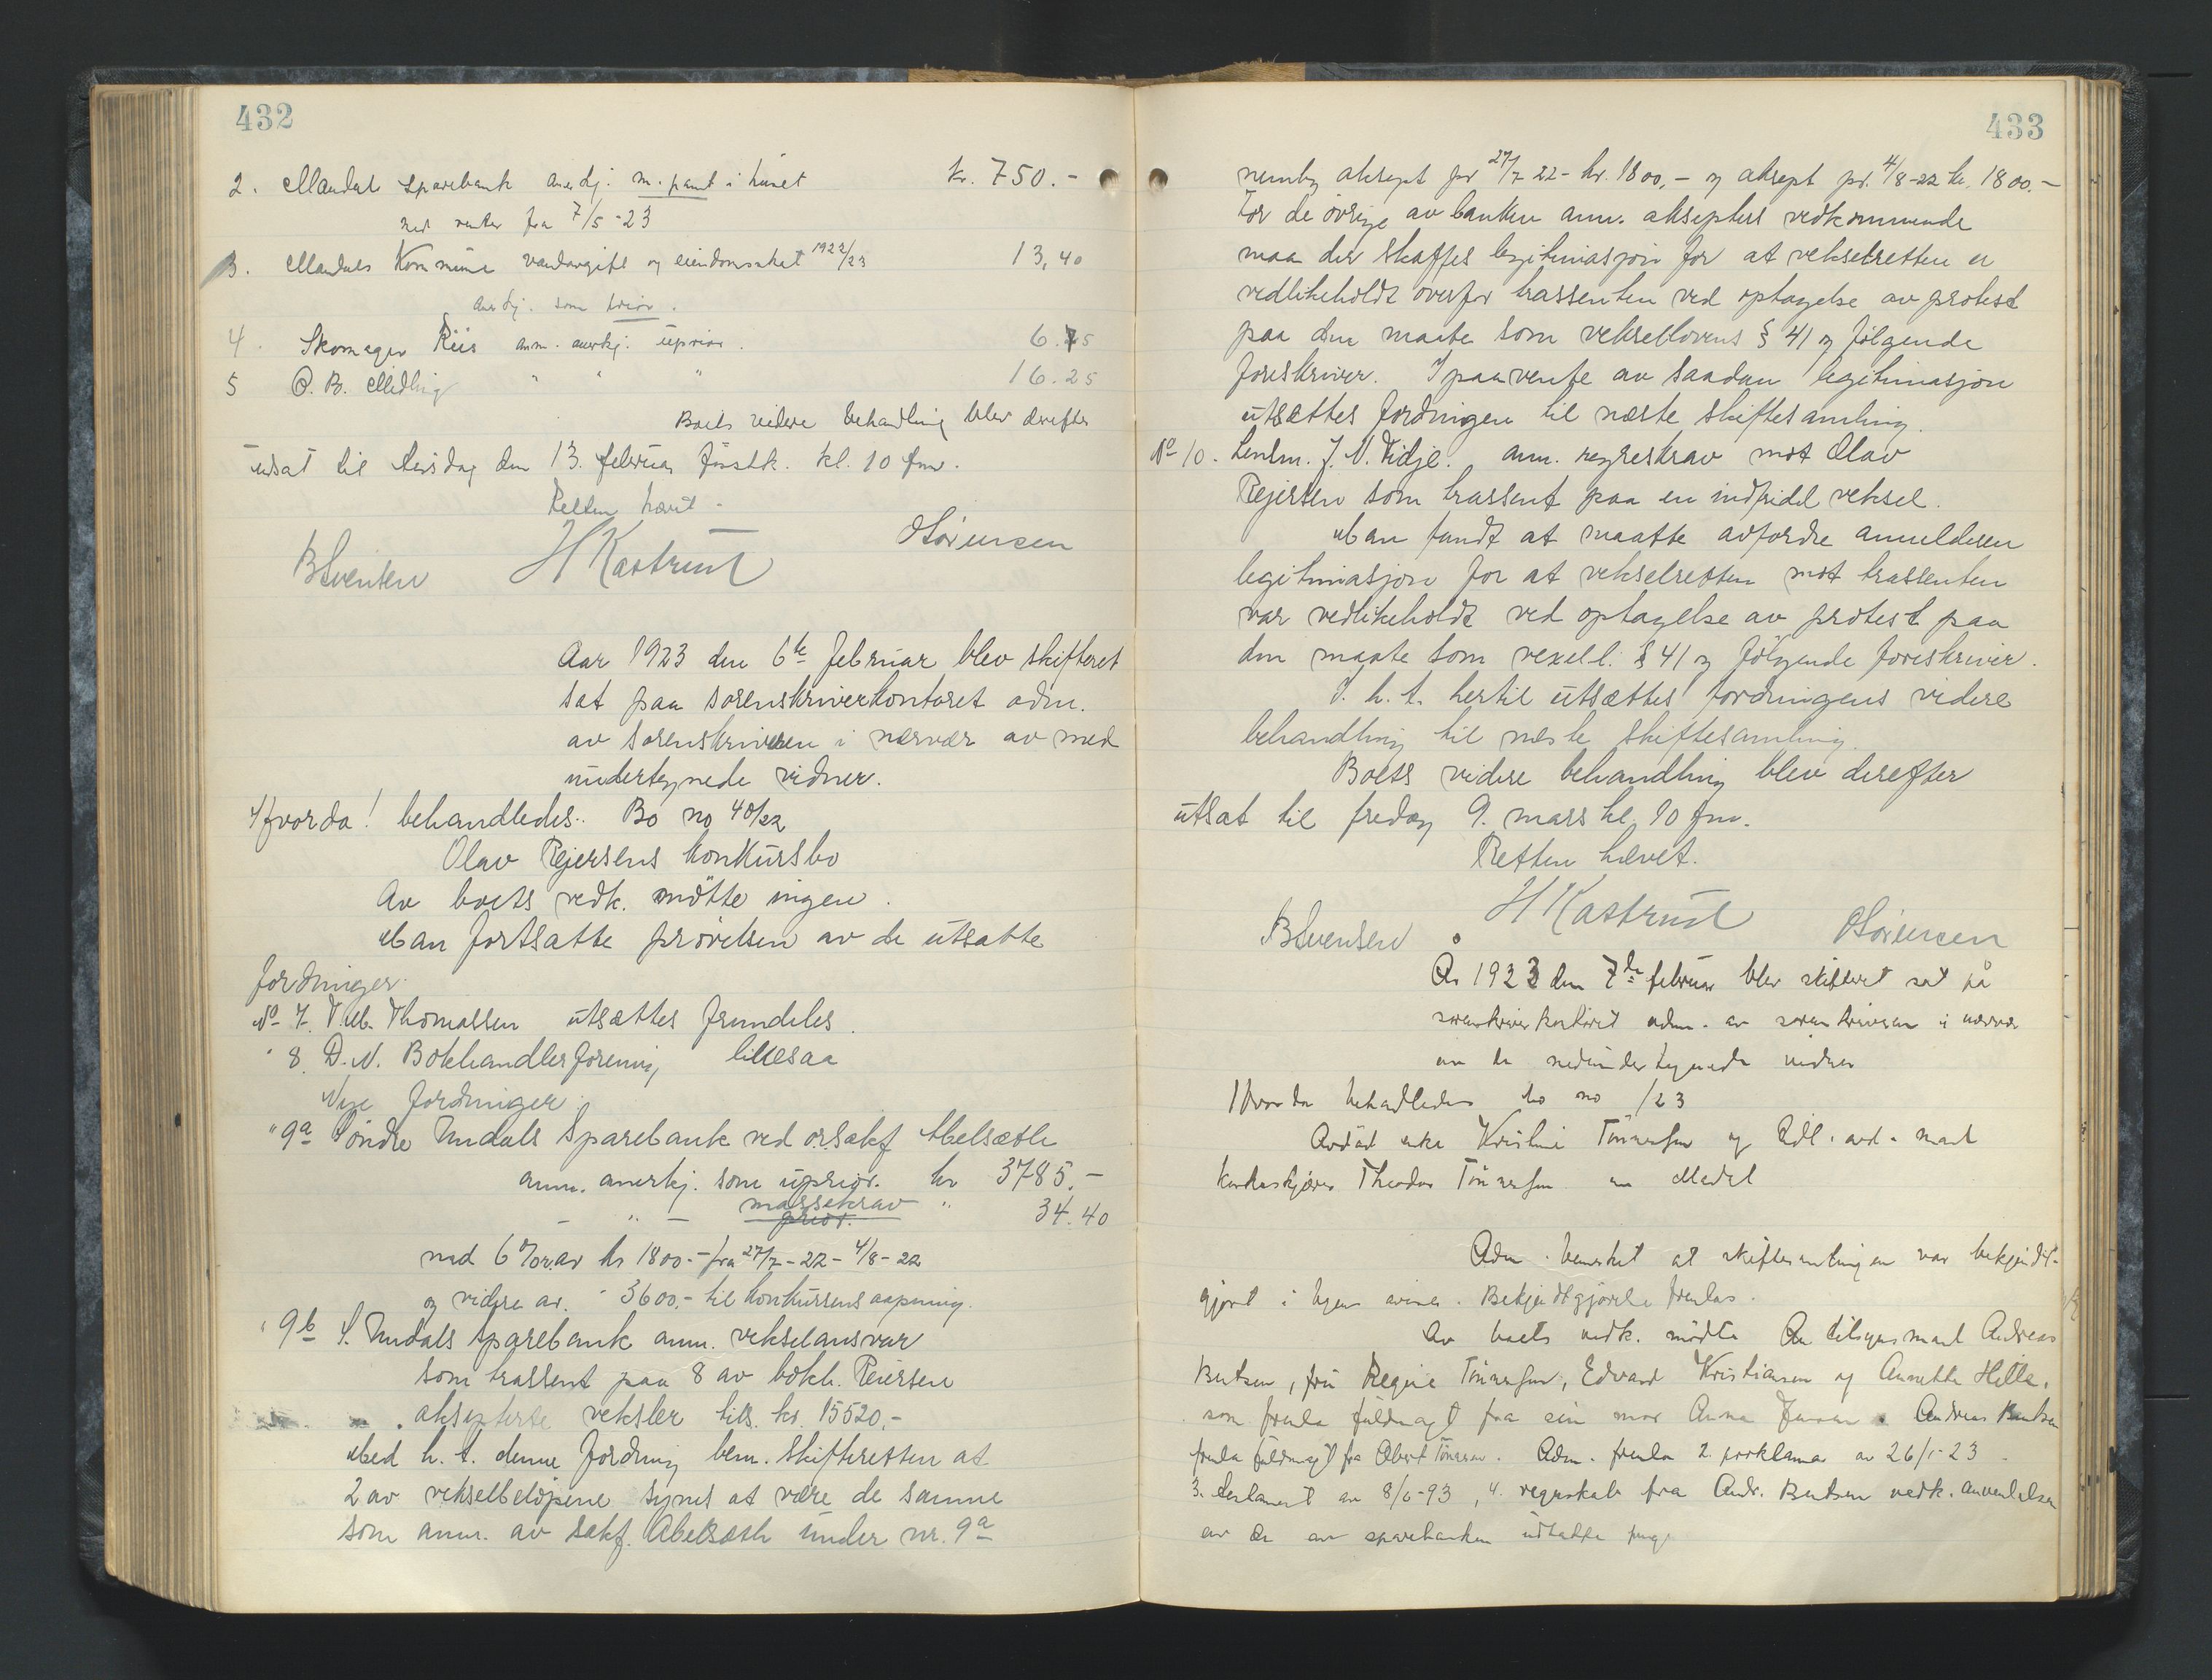 432
2. Mandals Sparebank anerkj. m. pant i huset kr. 750.-
med renter fra 7/5-23
3. Mandals Kommune vandavgift og eiendomsskat 1922/23 13,40
anerkj. som prior.
4. Skomager Riis anm. anerkj. uprior. 6.75
5 O. B. " " " 16.25
Boets videre behandling blev derefter
utsat til tirsdag den 13. februar førstk. kl. 10 fm.
Retten hævet -
BSvensen H Kastrud OSørensen
Aar 1923 den 6te februar blev skifteret
sat paa sorenskriverkontoret adm.
av sorenskriveren i nærvær av med
undertegnede vidner.
Hvorda! behandledes: Bo no 40/22
Olav Rejersens konkursbo
Av boets vedk. møtte ingen.
Man fortsatte prøvelsen av de utsatte
fordringer.
No 7. T. M. Thomassen utsættes fremdeles.
" 8. D. N. Bokhandlerforening likesaa
Nye fordringer:
" 9a Søndre Undals Sparebank ved o.r.sakf Abelsæth
anm. anerkj. som uprior. kr 3785.-
- " - massekrav " 34.40
prior.
med 6% av kr 1800.- fra 27/7-22 - 4/8-22
og videre av " 3600,- til konkursens aapning.
" 9b S. Undals Sparebank anm. vekselansvar
som trassent paa 8 av bokh. Reiersen
aksepterte veksler tils. kr. 15520.-
Med h. t. denne fordring bem. skifteretten at
2 av vekselbeløpene synes at være de samme
som anm. av sakf. Abelsæth under nr. 9a
433
nemlig aksept pr 27/7 22 - kr. 1800,- og aksept pr. 4/8-22 kr. 1800.-
For de øvrige av banken anm. aksepters vedkommende
maa der skaffes legitimasjon for at vekselretten er
vedlikeholdt overfor trassenten ved optagelse av protest
paa den maate som veksellovens § 41 og følgende
foreskriver. I paavente av saadan legitimasjon
utsættes fordringen til næste skiftesamling.
No 10. Lensm. J. N. Vidje. anm. regreskrav mot Olav
Rejersen som trassent paa en indfridd veksel.
Man fandt at maatte avfordre anmelderen
legitimasjon for at vekselretten mot trassenten
var vedlikeholdt ved optagelse av protest paa
den maate som vexell. § 41 og følgende foreskriver.
I. h. t. hertil utsættes fordringens videre
behandling til næste skiftesamling.
Boets videre behandling blev derefter
utsat til fredag 9. mars kl. 10 fm.
Retten hævet.
BSvensen H Kastrud OSørensen
År 1923 den 7de februar blev skifteret sat på
sorenskriverkontoret adm. av sorenskriveren i nærvær
av de nedundertegnede vidner
Hvorda behandledes bo no /23
Avdød enke Kristine Tønnesen og mand
Theodor Tønnesen av Mandal
Adm. bemerket at skiftesamlingen var bekjendt-
gjort i byens aviser. Bekjendtgjørelse fremlas.
Av boets vedk. mødte Andreas
Bentsen, fru Regine Tønnesen, Edvard Kristiansen og Annette Hille,
som fremla fuldmagt fra sin mor Anna. Andreas Bentsen
fremla fuldmagt fra Albert Tønnesen. Adm. fremla 2. proklama av 26/1-23.
3. testament av 8/6-93, 4. regnskab fra Andr. Bentsen vedk. anvendelsen
av de av sparebanken udtatte penge